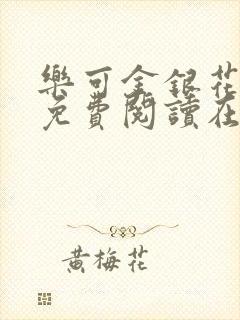 樂可金銀花
免費閱讀在
黃梅花